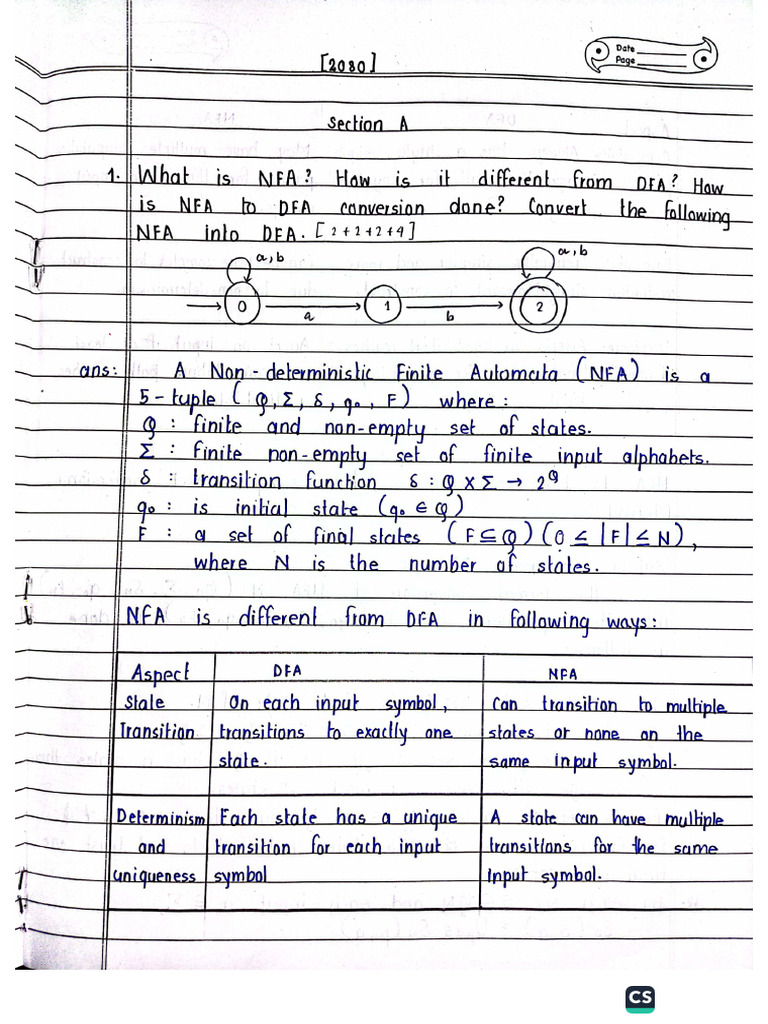 Date
Page
[2080]
Section A
1. What is NFA? How is it different from DFA? How
is NFA to DFA conversion done? Convert the following
NFA into DFA. [2+2+2+4]
a,b
a,b
0
a
1
b
2
ans: A Non-deterministic Finite Automata (NFA) is a
5-tuple (Q, Σ, δ, q₀, F) where:
Q : finite and non-empty set of states.
Σ : Finite non-empty set of finite input alphabets.
δ : transition function δ : Q X Σ → 2^Q
q₀ : is initial state (q₀ ∈ Q)
F : a set of final states (F ⊆ Q) (0 ≤ |F| ≤ N),
where N is the number of states.
NFA is different from DFA in following ways:
Aspect DFA NFA
State On each input symbol, Can transition to multiple
Transition transitions to exactly one states or none on the
state. same input symbol.
Determinism Each state has a unique A state can have multiple
and transition for each input transitions for the same
uniqueness symbol input symbol.
CS